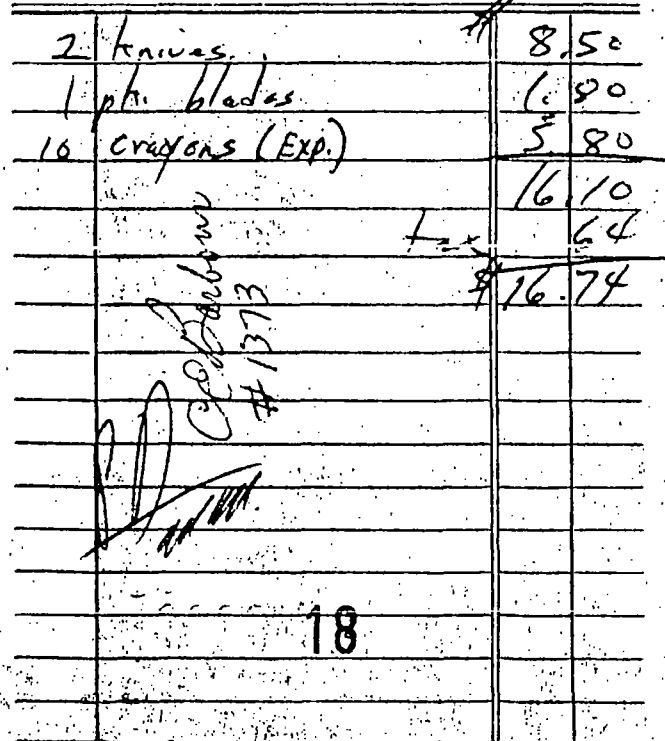 2 knives. $ 8.50
1 pk. blades 1.80
10 crayons (Exp.) 5.80
16.10
Tax .64
$ 16.74
# 1373
18